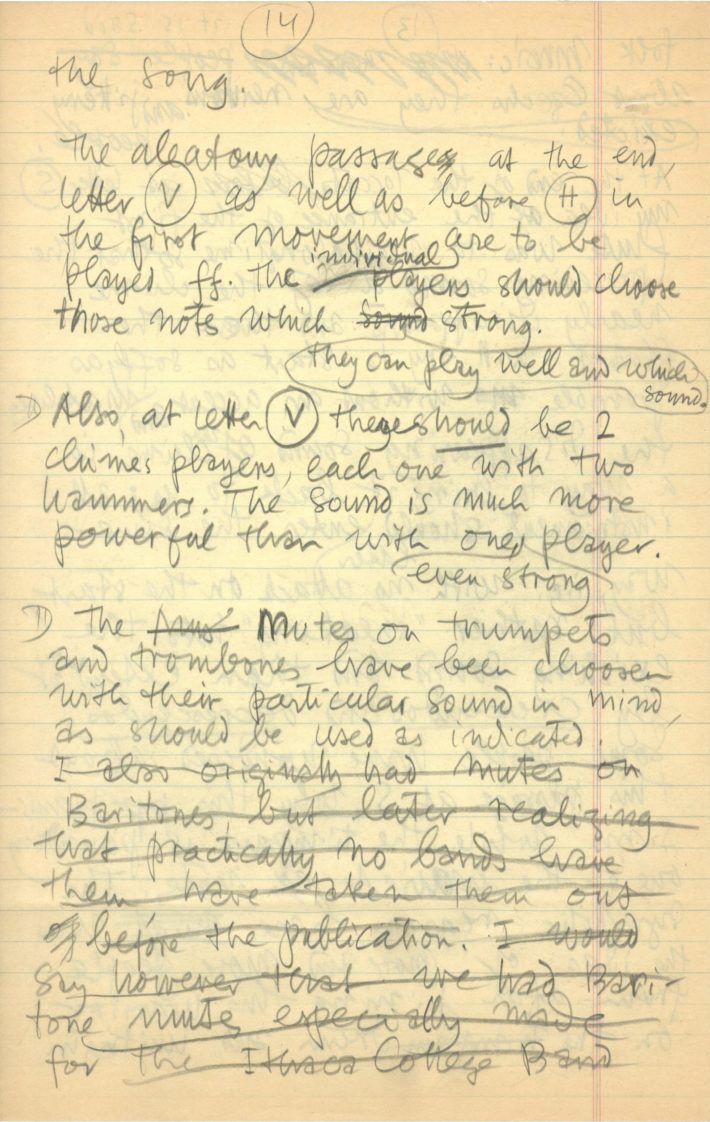 14
the song.
The aleatory passages at the end,
letter V as well as before H in
the first movement are to be
individual
played ff. The players should choose
those nots which sound strong.
they can play well and which
sound.
Also, at letter V there should be 2
chimes players, each one with two
hammers. The sound is much more
powerful than with one, player.
even strong
The Mus Mutes on trumpets
and trombones have been choosen
with their particular sound in mind,
as should be used as indicated.
I also originaly had mutes on
Baritones but later realizing
that practically no bands have
them have taken them out
before the publication. I would
say however that we had Bari-
tone mutes especially made
for the Ithaca College Band